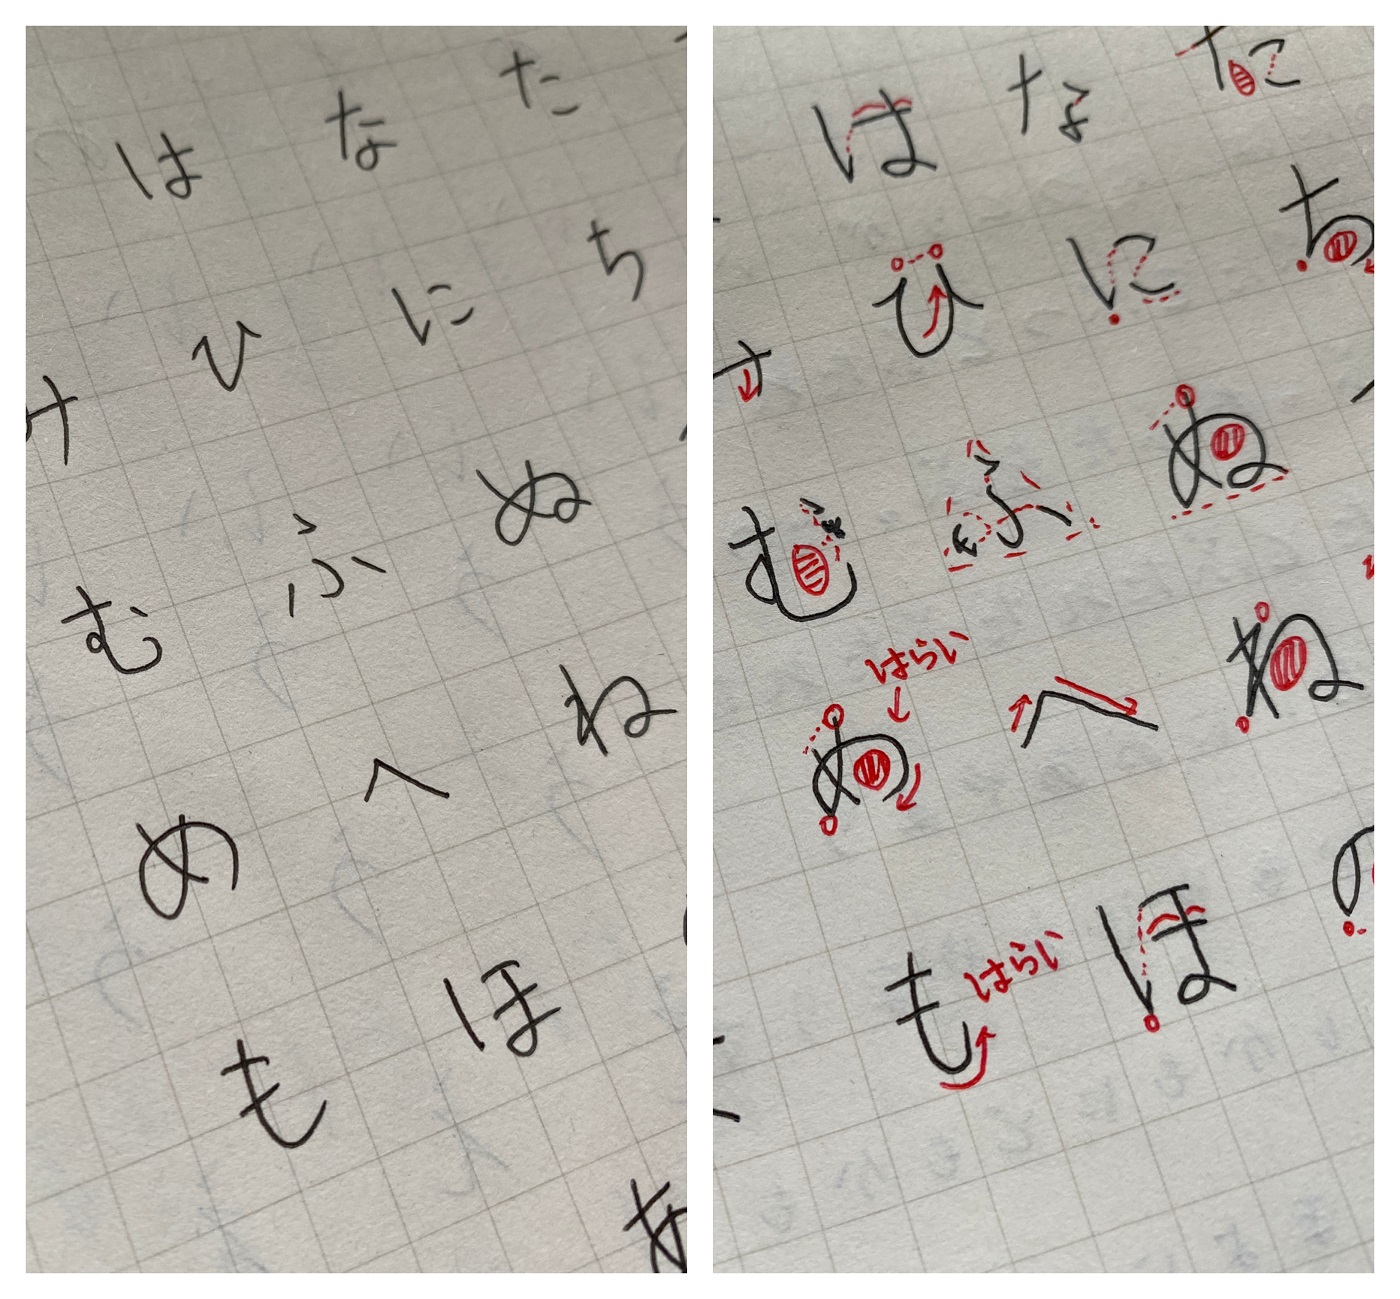 たち
なにぬね
はひふへほ
むめも
たち
なにぬね
はひふへほ
むめも
はらい
はらい